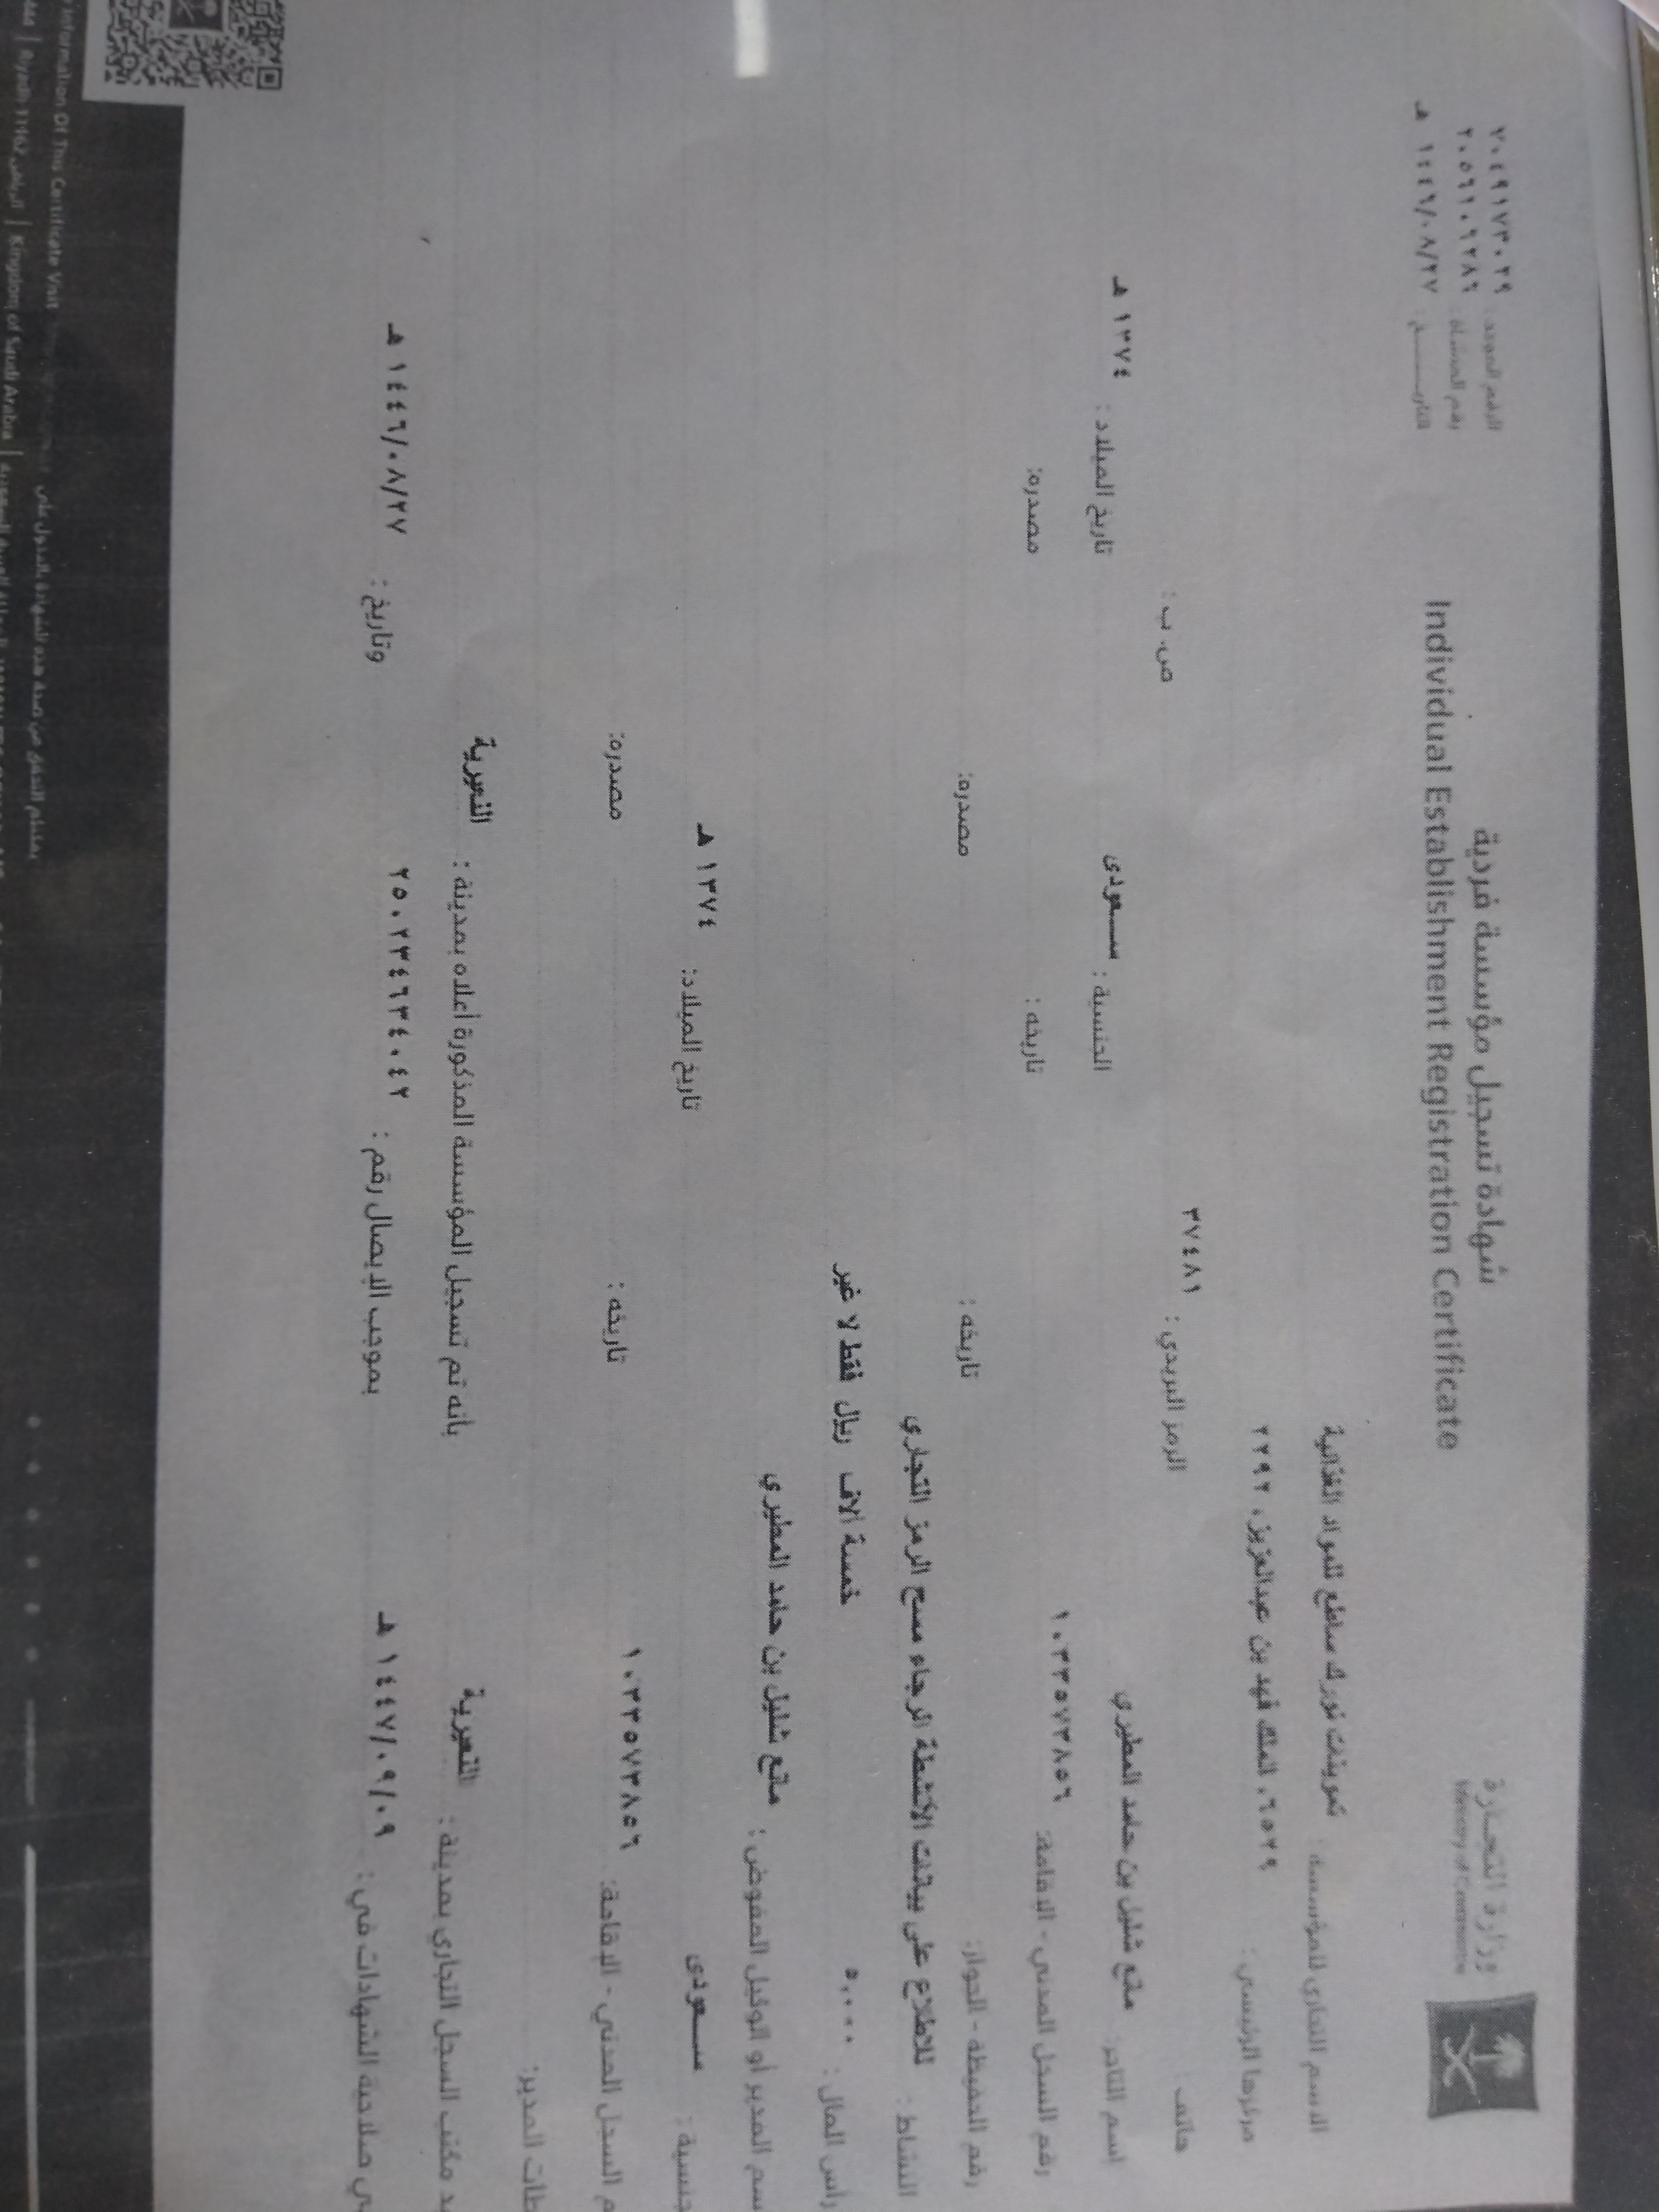 وزارة التجارة
Ministry of Commerce
شهادة تسجيل مؤسسة فردية
Individual Establishment Registration Certificate
الرقم الموحد :
رقم المنشأة : ٢٠٥٦١٠٩٢٨٦
التاريـــــخ : ١٤٤٦/٠٨/٢٧ هـ
الاسم التجاري للمؤسسة: للمواد الغذائية
مركزها الرئيسي : ٦٥٢٩، الملك فهد بن عبدالعزيز، ٢٢٩٢
هاتف : الرمز البريدي : ٣٧٤٨١ ص. ب :
اسم التاجر: متع شليل بن حامد المطيري الجنسية : سـعودى تاريخ الميلاد : ١٣٧٤ هـ
رقم السجل المدني - الاقامة: ١٠٣٣٥٧٣٨٥٦ تاريخه : مصدره:
رقم الحفيظة - الجواز: تاريخه : مصدره:
النشاط : للاطلاع على بيانات الأنشطة الرجاء مسح الرمز التجاري
رأس المال : ٥,٠٠٠ خمسة آلاف ريال فقط لا غير
سم المدير أو الوكيل المفوض : متع شليل بن حامد المطيري
جنسية : سـعودى تاريخ الميلاد: ١٣٧٤ هـ
م السجل المدني - الإقامة: ١٠٣٣٥٧٣٨٥٦ تاريخه : مصدره:
طات المدير:
يد مكتب السجل التجاري بمدينة : النعيرية بأنه تم تسجيل المؤسسة المذكورة أعلاه بمدينة : النعيرية
ي صلاحية الشهادات في : ١٤٤٧/٠٩/٠٩ هـ بموجب الإيصال رقم : ٢٥٠٢٣٤٦٣٤٠٤٢ وتاريخ : ١٤٤٦/٠٨/٢٧ هـ
Information Of This Certificate Visit
يمكنكم التحقق من صحة هذه الشهادة بالدخول على
Riyadh 11162 الرياض | Kingdom of Saudi Arabia | المملكة العربية السعودية